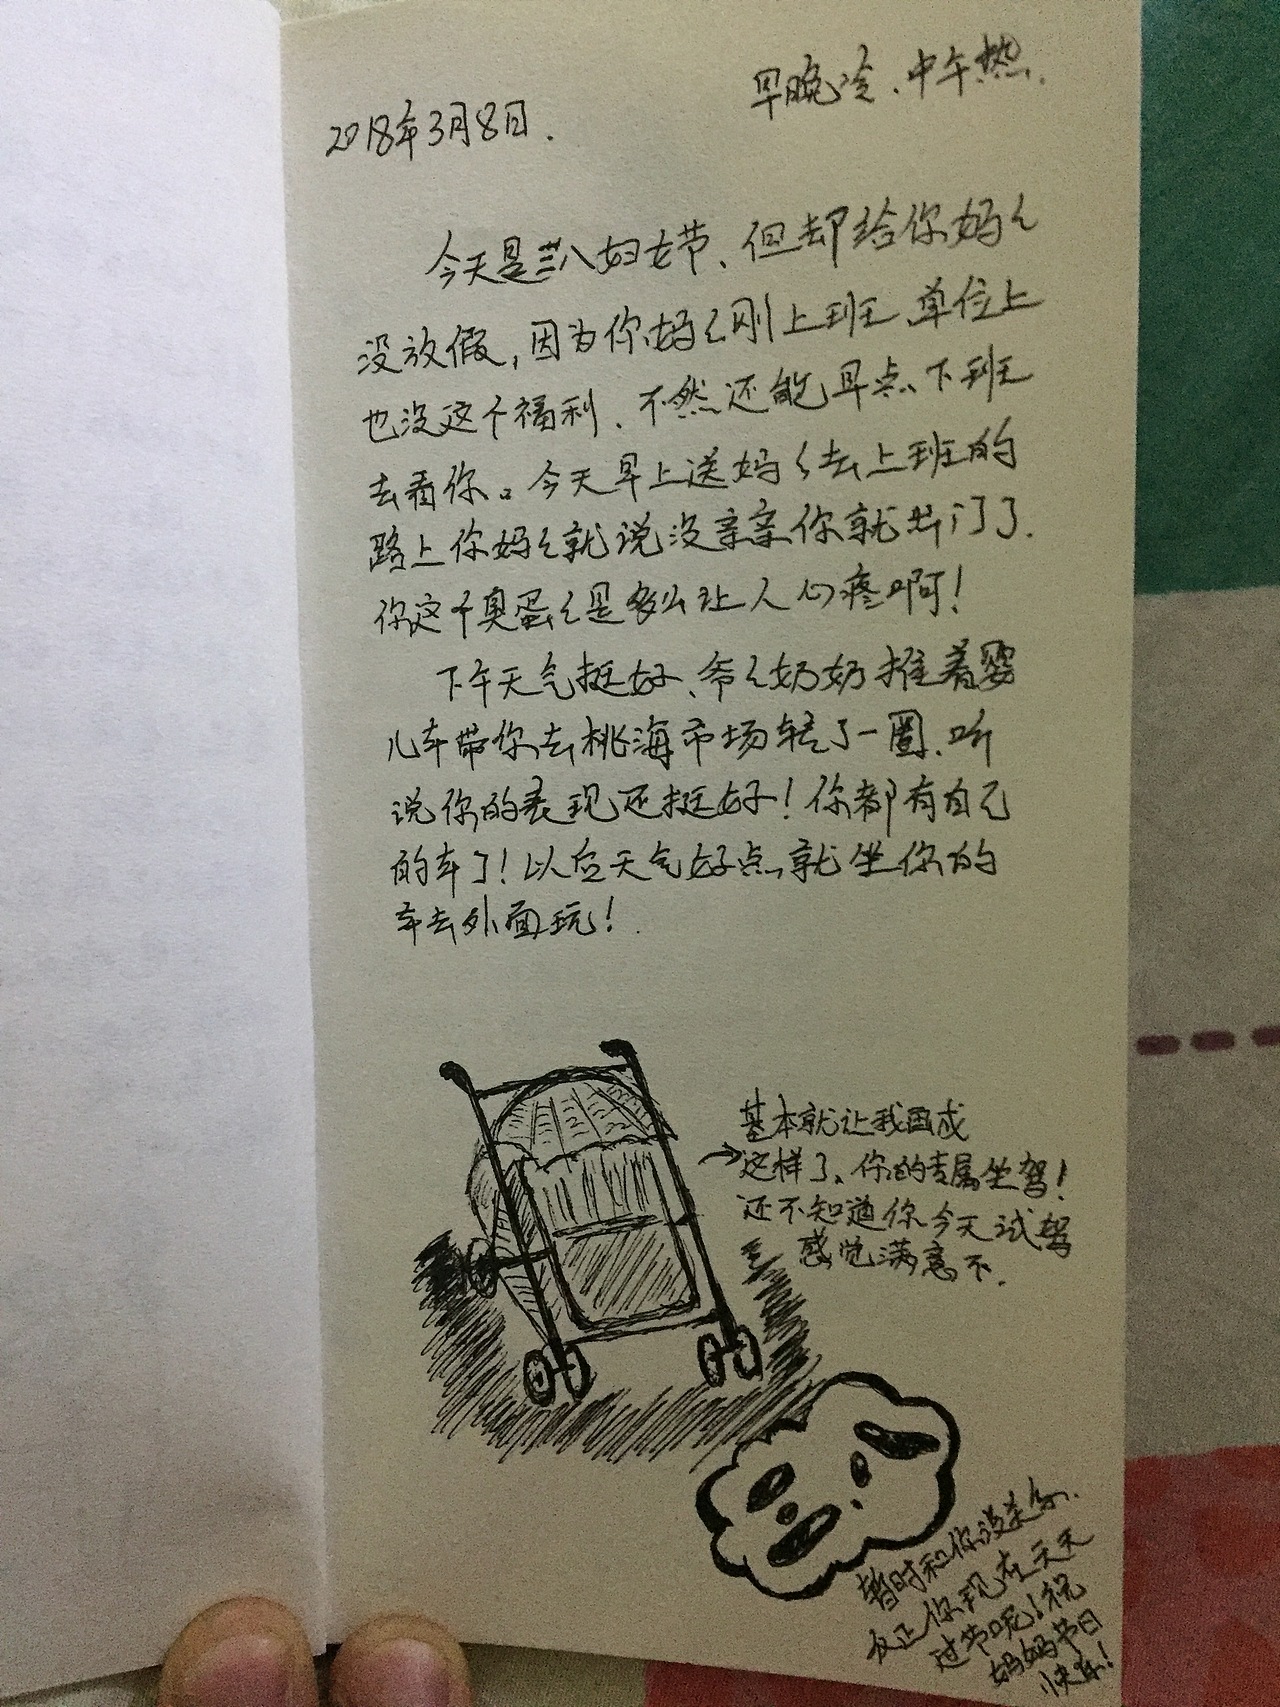 2018年3月8日.
早晚冷、中午热.
今天是三八妇女节、但却给你妈々
没放假,因为你妈々刚上班、单位上
也没这个福利、不然还能早点下班
去看你。今天早上送妈々去上班的
路上你妈々就说没亲亲你就出门了.
你这个臭蛋々是多么让人心疼啊!
下午天气挺好、爷々奶奶推着婴
儿车带你去桃海市场转了一圈、听
说你的表现还挺好!你都有自己
的车了!以后天气好点就坐你的
车去外面玩!
基本就让我画成
→这样了、你的专属坐驾!
还不知道你今天试驾
感觉满意不.
暂时和你没关系.
反正你现在天天
过节呢!祝
妈妈节日
快乐!